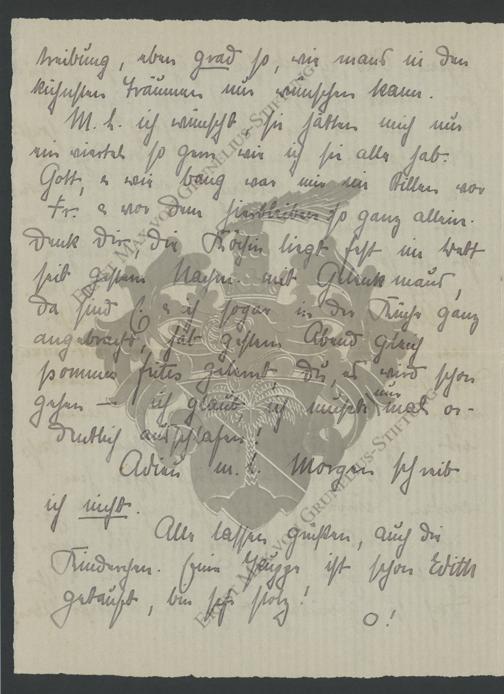 treibung, eben grad so, wie mans in den
kühnsten Träumen nur wünschen kann.
M. L. ich wünscht sie hätten mich nur
ein viertel so gern wie ich sie alle hab.
Gott, wie bang war mir im Stillen vor
Fr. vor dem hierbleiben so ganz allein.
Denk Dir die Köchin liegt fest im Bett
seit gestern Nachm. mit
da sind ich sogar in der Küche ganz
angebracht, hab gestern Abend gleich
gelernt, Du, es wird schon
gehen — ich glaub ich nur mal or-
dentlich ausschlafen!
Adieu m. L. Morgen schreib
ich nicht.
Alle lassen grüßen, auch die
Kinderchen. Eine Puppe ist schon Edith
getauft, bin sehr stolz!
O!
ERNST MAX VON GRUNELIUS-STIFTUNG
ERNST MAX VON GRUNELIUS-STIFTUNG